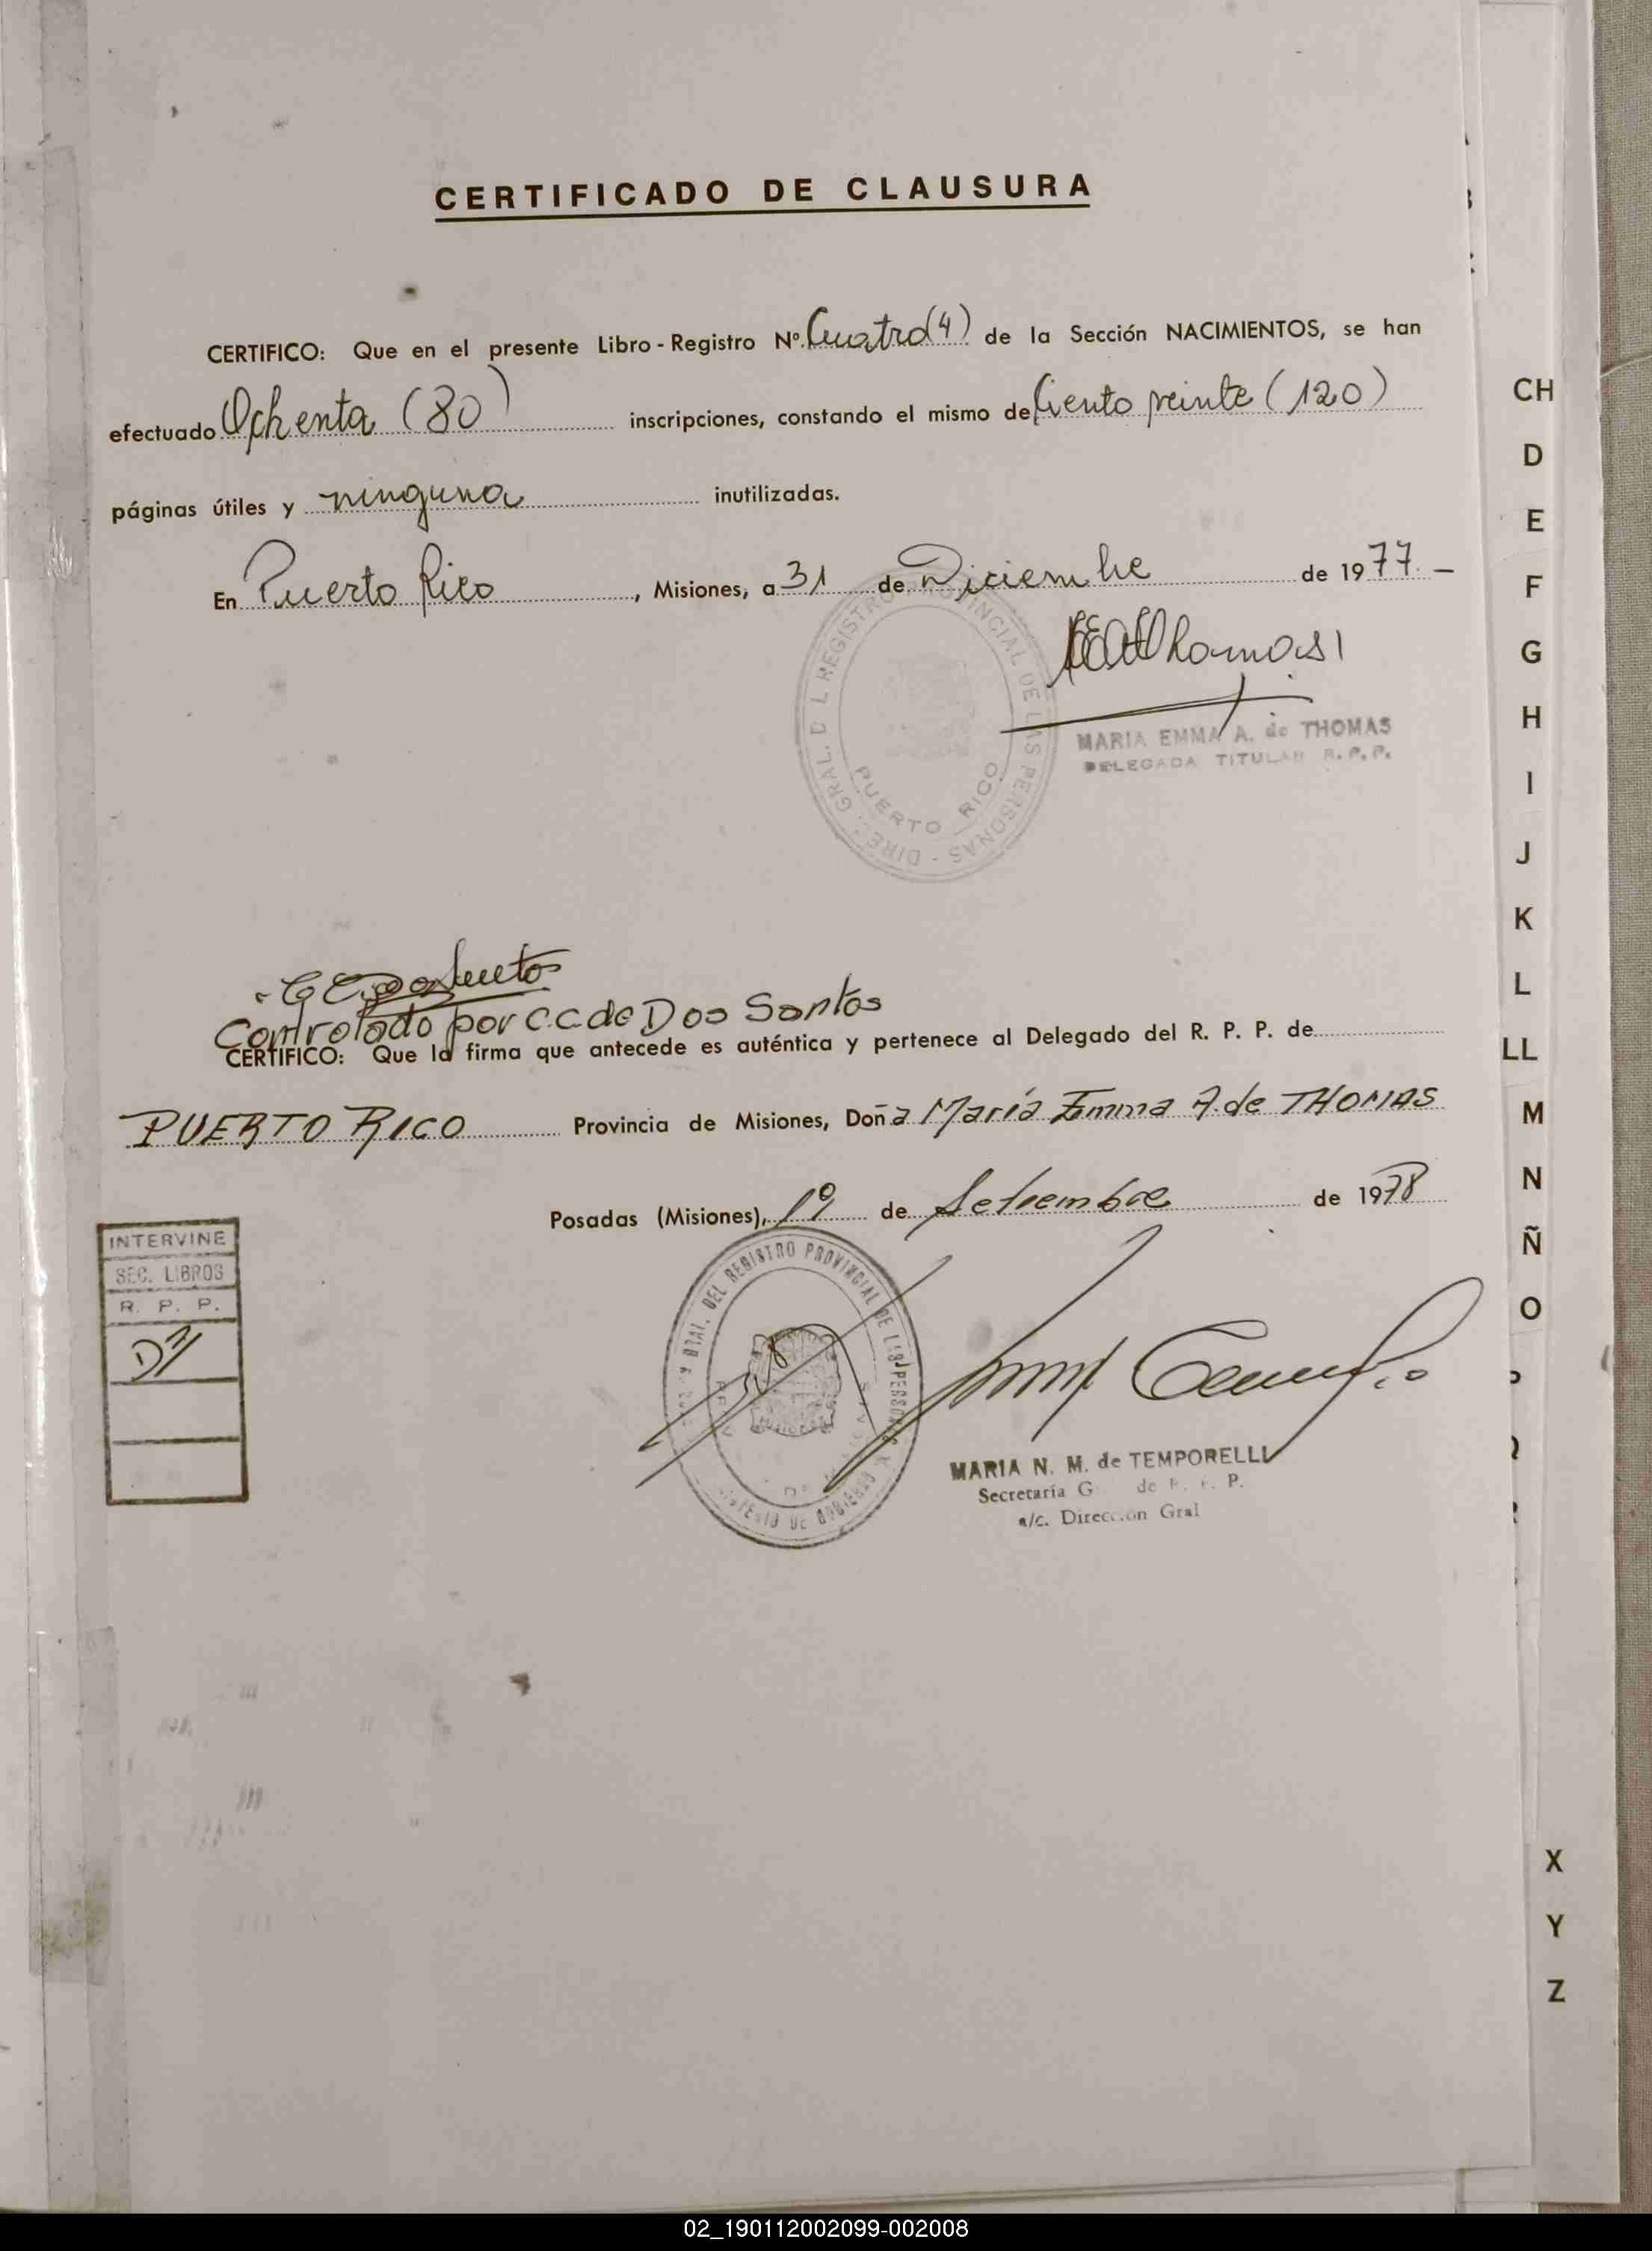 CERTIFICADO DE CLAUSURA
CERTIFICO: Que en el presente Libro - Registro Nº. Cuatro (4) de la Sección NACIMIENTOS, se han
efectuado Ochenta (80) inscripciones, constando el mismo de Ciento veinte (120)
páginas útiles y ninguna inutilizadas.
En Puerto Rico, Misiones, a 31 de Diciembre de 1977.-
MARIA EMMA A. de THOMAS
DELEGADA TITULAR R. P. P.
DIREC. GRAL. DEL REGISTRO PROVINCIAL DE LAS PERSONAS -
PUERTO RICO
Controlado por C.C. de Dos Santos
CERTIFICO: Que la firma que antecede es auténtica y pertenece al Delegado del R. P. P. de
PUERTO RICO Provincia de Misiones, Doña María Emma A. de THOMAS
Posadas (Misiones), 1º de Setiembre de 1978
INTERVINE
SEC. LIBROS
R. P. P.
GRAL. DEL REGISTRO PROVINCIAL DE LAS PERSONAS
MINISTERIO DE GOBIERNO
MARIA N. M. de TEMPORELLI
Secretaría G de R. P. P.
a/c. Dirección Gral
CH
D
E
F
G
H
I
J
K
L
LL
M
N
Ñ
O
X
Y
Z
02_190112002099-002008